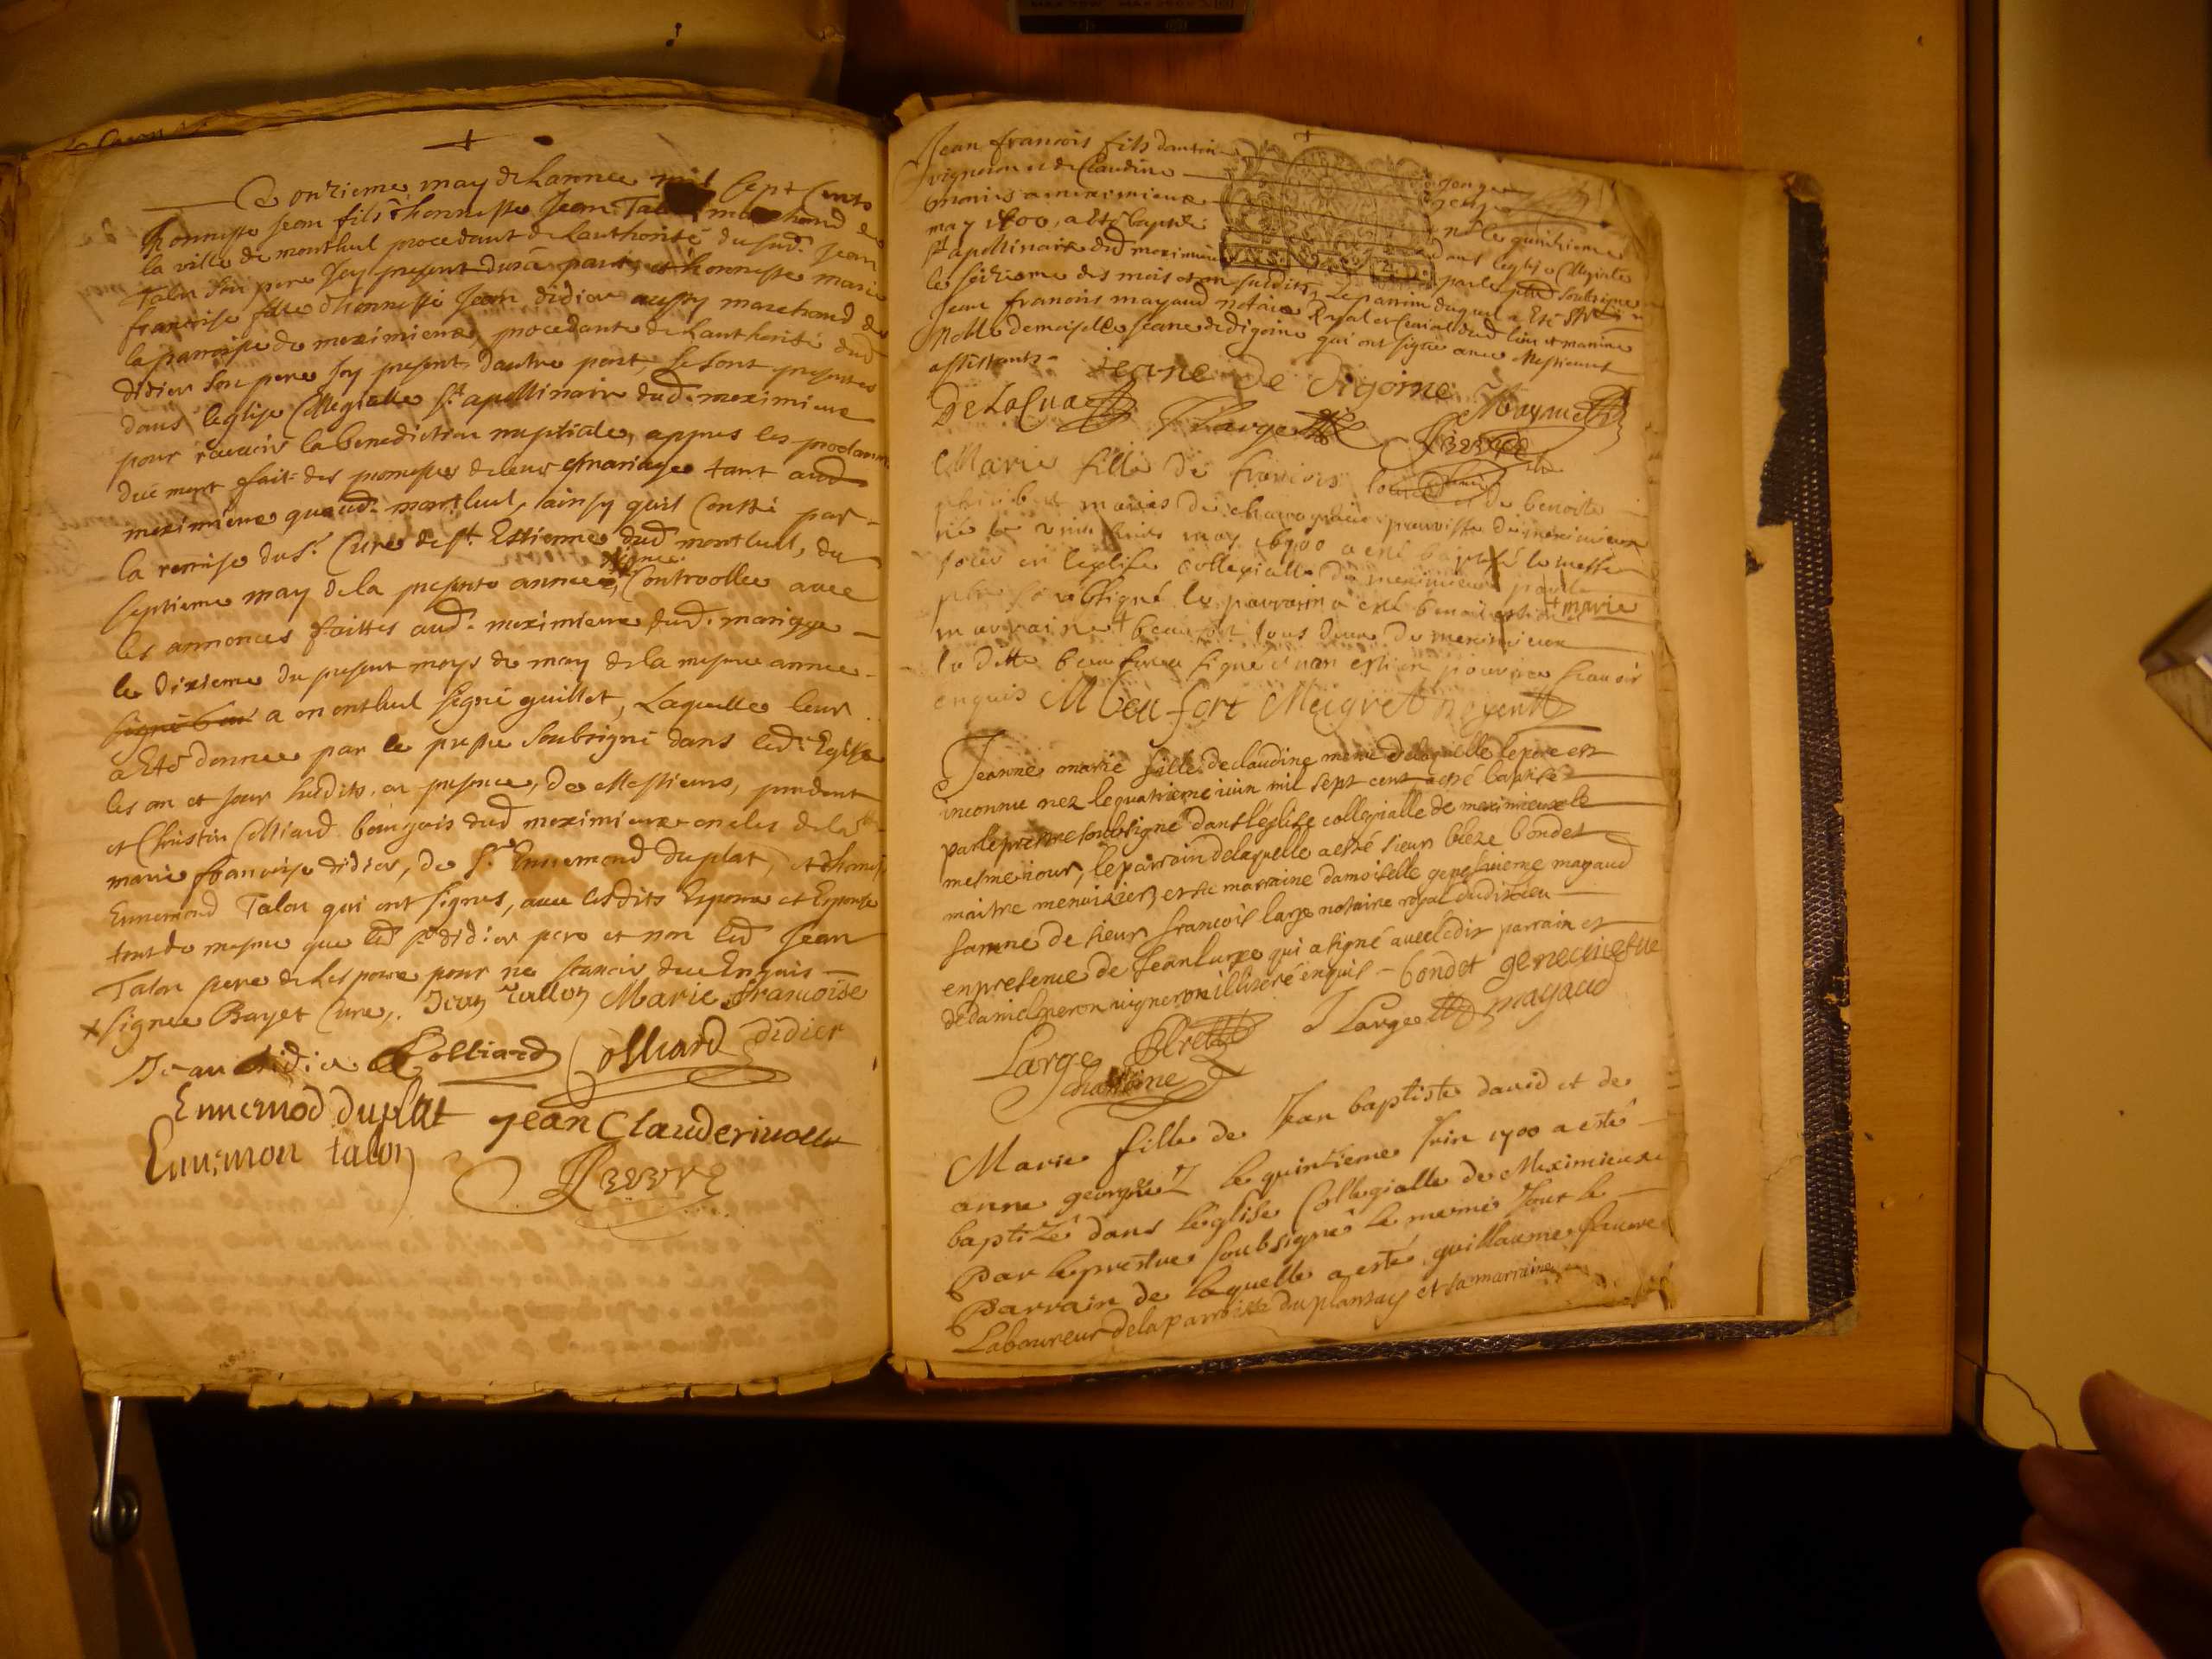 Ce onzieme may de lannee mil sept cents
honneste Jean fils d'honneste Jean Talon marchand de
la ville de montluel procedant de Lauthorité dusud. Jean
Talon son pere Icy present dune part, et honneste marie
francoise fille d'honneste Jean didier aussy marchand de
la parroisse de meximieux, procedante de Lauthorité dud
didier son pere Icy present, dautre part, se sont presentes
dans leglise Collegialle st. apollinaire dud. meximieux
pour recevoir la benediction nuptiale, appres les proclam
duement faites des promesses de leur mariage tant aud
meximieux quaud. montluel, ainsy quil Conste par
la remise du Sr. Curé de st. Estienne dud montluel, du
signee
septieme may de la presente annee, Controollee avec
les annonces faittes aud. meximieux dud. mariage
le dixieme du present moys de may de la mesme annee
a montluel signé guillet, Laquelle leur
a Eté donnee par le prestre soubsigné dans lad. Eglise
les an et jour susdits. en presence, de Messieurs, prudent
et Christin Colliard bourgois dud meximieux oncles de lad
marie francoise didier, de Sr. Ennemond duplat, et d'honneste
Ennemond Talon qui ont signes, avec lesdits Espoux et Espouse
tout de mesme que led Sr didier pere et non led Jean
Talon pere de Lespoux pour ne scavoir, duc Enquis
x signee Bayet Curé. Jean tallon Marie francoise
didier
Jean didier Colliard Colliard
Ennemod duplat jean Clauderivollet
Ennemon talon
Jean francois fils dantoin
vigneron et de Claudine
a meximieux
n le quinzieme
may 1700, a Eté baptizé
dans leglise Collegialle
st apollinaire dud meximieux
par le pbre soubsigné
le seizieme des mois et an susdits, Le parrain duquel a Eté Sr
Jean francois mayaud notaire Royal et Curial dud lieu et marrine
Noble demoiselle Jeane de digoine qui ont signé avec Messieurs
assistants. jeane de digoine
DeLaCua J Large Mayaud
Marie fille de francois et de benoite
mariés de parroisse de meximieux
née le vint may 1700 a esté baptizé le mesme
jour en leglise collegialle de meximieux par le
pbre soubsigné le parrain a esté benoit et marie
marraine + beaufort tous deux de meximieux
la ditte beaufort a signé non pour ne scavoir
enquis M beufort Meigret
Jeanne marie fille de claudine mere de laquelle le pere est
inconnu nez le quatrieme iuin mil sept cent, a esté baptisé
par le prestre soubsigné dans l'église collegialle de meximieux le
mesme iour, le parrain de laquelle a esté sieur bleze bondet
maitre menuisier, et sa marraine damoiselle genevieve mayaud
famme de sieur francois large notaire royal dudit lieu
en presence de Jean large qui a signé avec ledit parrain et
de daniel peron vigneron illiteré enquis - bondet geneviefve
mayaud
Large J Large
chanoine
Marie fille de Jean baptiste david et de
anne georges Z le quinzieme Juin 1700 a esté
baptizé dans léglise Collegialle de Meximieux
Par le prestre soubsigné le meme Jour le
Parrain de laquelle a esté, guillaume faure
Laboureur de la parroisse du plantay et sa marraine